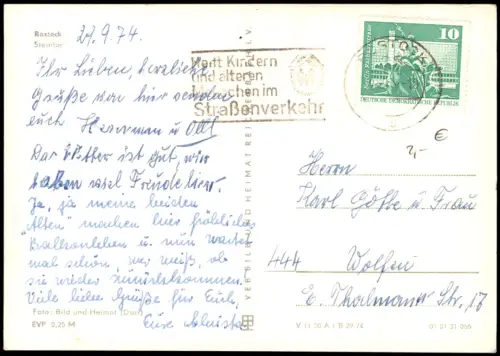 Rostock
Steintor
27.9.74.
Ihr Lieben, herzliche
Grüße von hier senden
euch Hermann u.
Das Wetter ist gut, wir
haben viel Freude hier.
Ja, ja meine beiden
"Alten" machen hier fröhliches
Balkonleben u. nun warten
mal schön, wer weiß, ob
sie wieder zurückkommen.
Viele liebe Grüße für Euch,
Eure
Foto: Bild und Heimat
EVP 0,25 M
VEB BILD UND HEIMAT REICHENBACH I. V.
Helft Kindern
und älteren
Menschen im
Straßenverkehr
10
DEUTSCHE DEMOKRATISCHE REPUBLIK
2,- €
Herrn
Karl Götke u Frau
444 Wolfen
E. Thälmann Str. 17
V 11 50 A 1 B 29 74
01 01 31 055